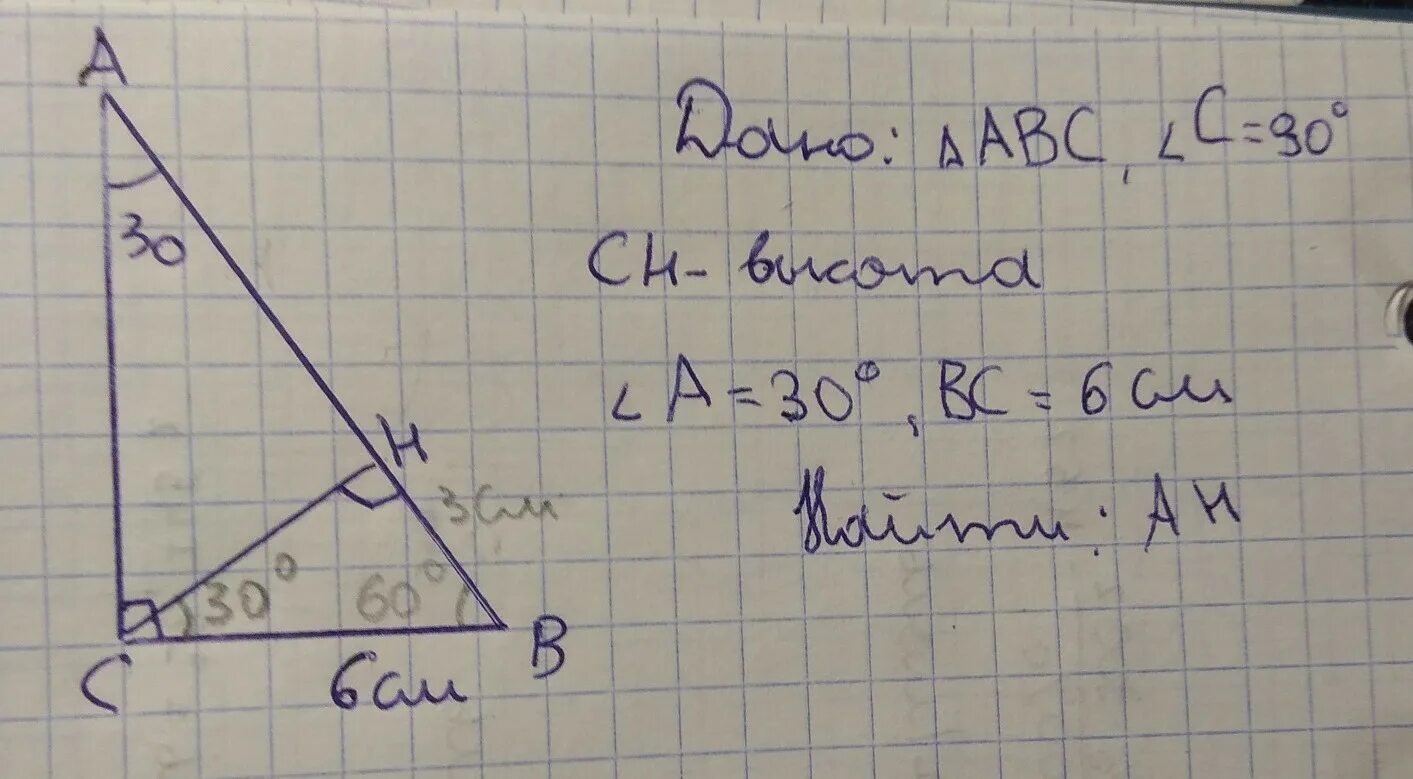 A
30
H
3см
30°
60°
C
B
6см
Дано: ΔABC, ∠C=90°
CH- высота
∠A=30°, BC=6см
Найти: AH